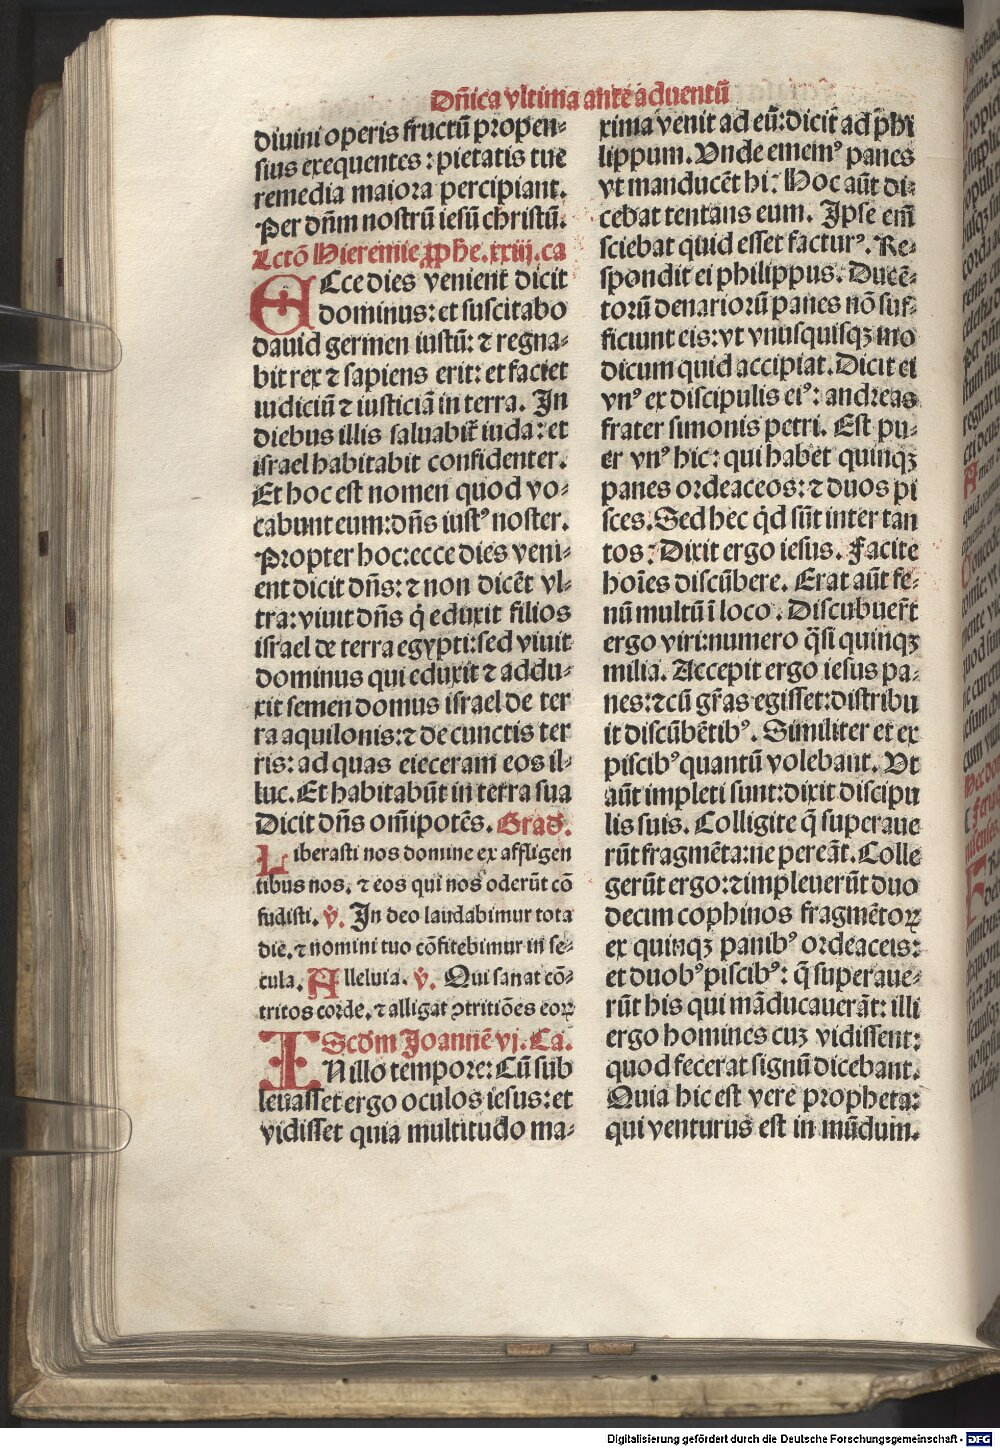 Dñica vltima ante aduentũ
diuini operis fructũ propen⸗
sius exequentes: pietatis tue
remedia maiora percipiant.
Per dñm nostrũ iesũ christũ.
Lctõ Hieremie ꝓphe. xxiij. ca
ECce dies venient dicit
dominus: et suscitabo
dauid germen iustũ: ⁊ regna⸗
bit rex ⁊ sapiens erit: et faciet
iudiciũ ⁊ iusticiã in terra. In
diebus illis saluabit̃ iuda: et
israel habitabit confidenter.
Et hoc est nomen quod vo⸗
cabunt eum: dñs iustꝰ noster.
Propter hoc: ecce dies veni⸗
ent dicit dñs: ⁊ non dicẽt vl⸗
tra: viuit dñs q̇ eduxit filios
israel de terra egypti: sed viuit
dominus qui eduxit ⁊ addu⸗
xit semen domus israel de ter
ra aquilonis: ⁊ de cunctis ter
ris: ad quas eieceram eos il⸗
luc. Et habitabũt in terra sua
Dicit dñs om̃ipotẽs. Grad.
Liberasti nos domine ex affligen
tibus nos. ⁊ eos qui nos oderũt cõ
fudisti. ℣. In deo laudabimur tota
die. ⁊ nomini tuo cõfitebimur in se⸗
cula. Alleluia. ℣. Qui sanat cõ⸗
tritos corde. ⁊ alligat ꝯtritiões eoꝝ
Scd̃m Joannẽ vj. Ca.
IN illo tempore: Cũ sub
leuasset ergo oculos iesus: et
vidisset quia multitudo ma⸗
xima venit ad eũ: dicit ad phi
lippum. Vnde ememꝰ panes
vt manducẽt hi: Hoc aũt di⸗
cebat tentans eum. Ipse em̃
sciebat quid esset facturꝰ. Re⸗
spondit ei philippus. Ducẽ⸗
torũ denariorũ panes nõ suf⸗
ficiunt eis: vt vnusquisqꝫ mo
dicum quid accipiat. Dicit ei
vnꝰ ex discipulis eiꝰ: andreas
frater simonis petri. Est pu⸗
er vnꝰ hic: qui habet quinqꝫ
panes ordeaceos: ⁊ duos pi
sces. Sed hec q̇d sũt inter tan
tos: Dixit ergo iesus. Facite
hoĩes discũbere. Erat aũt fe⸗
nũ multũ ĩ loco. Discubuer̃t
ergo viri: numero q̃si quinqꝫ
milia. Accepit ergo iesus pa⸗
nes: ⁊ cũ gr̃as egisset: distribu
it discũbẽtibꝰ. Similiter et ex
piscibꝰ quantũ volebant. Vt
aũt impleti sunt: dixit discipu
lis suis. Colligite q̃ superaue
rũt fragmẽta: ne pereãt. Colle
gerũt ergo: ⁊ impleuerũt duo
decim cophinos fragmẽtoꝝ
ex quinqꝫ panibꝰ ordeaceis:
et duobꝰ piscibꝰ: q̃ superaue⸗
rũt his qui mãducauerãt: illi
ergo homines cuꝫ vidissent:
quod fecerat signũ dicebant.
Quia hic est vere propheta:
qui venturus est in mũdum.
Digitalisierung gefördert durch die Deutsche Forschungsgemeinschaft - DFG